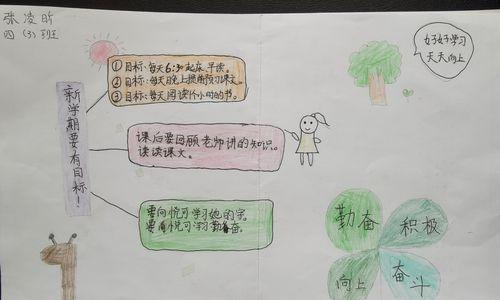 张凌昕
四(3)班
好好学习
天天向上
新学期要有目标!
①目标:每天6:30起床,早读。
②目标:每天晚上提前预习课文。
③目标:每天阅读1个小时的书。
课后要回顾老师讲的知识。
读读课文。
要向悦可学习她的字。
要向悦可学习勤奋。
勤奋
积极
向上
奋斗